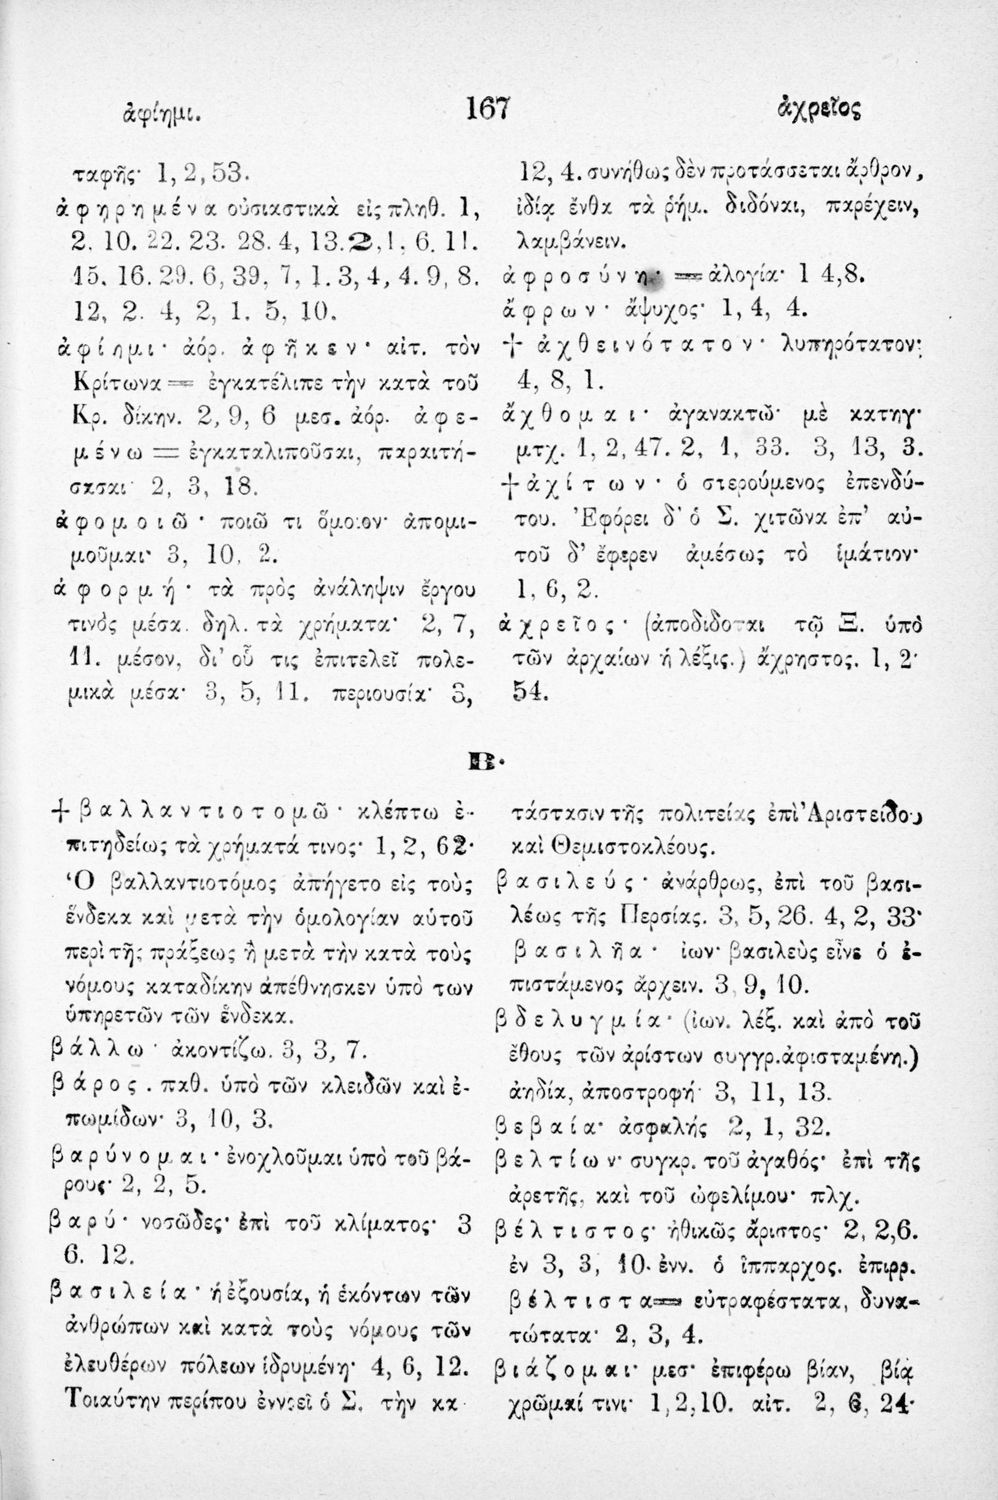 ἀφίημι. 167 ἀχρεῖος
ταφῆς· 1, 2, 53.
ἀφῃρημένα οὐσιαστικὰ εἰς πληθ. 1,
2. 10. 22. 23. 28. 4, 13. 2, 1. 6. 11.
15. 16. 29. 6, 39. 7, 1. 3, 4, 4. 9, 8.
12, 2. 4, 2, 1. 5, 10.
ἀφίημι· ἀόρ. ἀφῆκεν· αἰτ. τὸν
Κρίτωνα = ἐγκατέλιπε τὴν κατὰ τοῦ
Κρ. δίκην. 2, 9, 6 μεσ. ἀόρ. ἀφε-
μένω = ἐγκαταλιποῦσαι, παραιτή-
σασαι· 2, 3, 18.
ἀφομοιῶ· ποιῶ τι ὅμοιον· ἀπομι-
μοῦμαι· 3, 10, 2.
ἀφορμή· τὰ πρὸς ἀνάληψιν ἔργου
τινὸς μέσα. δηλ. τὰ χρήματα· 2, 7,
11. μέσον, δι' οὗ τις ἐπιτελεῖ πολε-
μικὰ μέσα· 3, 5, 11. περιουσία· 3,
12, 4. συνήθως δὲν προτάσσεται ἄρθρον,
ἰδίᾳ ἔνθα τὰ ῥήμ. διδόναι, παρέχειν,
λαμβάνειν.
ἀφροσύνη· = ἀλογία· 1 4,8.
ἄφρων· ἄψυχος· 1, 4, 4.
† ἀχθεινότατον· λυπηρότατον·
4, 8, 1.
ἄχθομαι· ἀγανακτῶ· μὲ κατηγ·
μτχ. 1, 2, 47. 2, 1, 33. 3, 13, 3.
† ἀχίτων· ὁ στερούμενος ἐπενδύ-
του. Ἐφόρει δ' ὁ Σ. χιτῶνα ἐπ' αὐ-
τοῦ δ' ἔφερεν ἀμέσως τὸ ἱμάτιον·
1, 6, 2.
ἀχρεῖος· (ἀποδίδοται τῷ Ξ. ὑπὸ
τῶν ἀρχαίων ἡ λέξις.) ἄχρηστος. 1, 2·
54.
Β·
† βαλλαντιοτομῶ· κλέπτω ἐ-
πιτηδείως τὰ χρήματά τινος· 1, 2, 62·
Ὁ βαλλαντιοτόμος ἀπήγετο εἰς τοὺς
ἕνδεκα καὶ μετὰ τὴν ὁμολογίαν αὐτοῦ
περὶ τῆς πράξεως ἢ μετὰ τὴν κατὰ τοὺς
νόμους καταδίκην ἀπέθνησκεν ὑπὸ των
ὑπηρετῶν τῶν ἕνδεκα.
βάλλω· ἀκοντίζω. 3, 3, 7.
βάρος. παθ. ὑπὸ τῶν κλειδῶν καὶ ἐ-
πωμίδων· 3, 10, 3.
βαρύνομαι· ἐνοχλοῦμαι ὑπὸ τοῦ βά-
ρους· 2, 2, 5.
βαρύ· νοσῶδες· ἐπὶ τοῦ κλίματος· 3
6. 12.
βασιλεία· ἡ ἐξουσία, ἡ ἑκόντων τῶν
ἀνθρώπων καὶ κατὰ τοὺς νόμους τῶν
ἐλευθέρων πόλεων ἱδρυμένη· 4, 6, 12.
Τοιαύτην περίπου ἐννοεῖ ὁ Σ. τὴν κα
τάστασιν τῆς πολιτείας ἐπὶ Ἀριστείδου
καὶ Θεμιστοκλέους.
βασιλεύς· ἀνάρθρως, ἐπὶ τοῦ βασι-
λέως τῆς Περσίας. 3, 5, 26. 4, 2, 33·
βασιλῆα· ἰων· βασιλεὺς εἶνε ὁ ἐ-
πιστάμενος ἄρχειν. 3, 9, 10.
βδελυγμία· (ἰων. λέξ. καὶ ἀπὸ τοῦ
ἔθους τῶν ἀρίστων συγγρ. ἀφισταμένη.)
ἀηδία, ἀποστροφή· 3, 11, 13.
βεβαία· ἀσφαλής 2, 1, 32.
βελτίων· συγκρ. τοῦ ἀγαθός· ἐπὶ τῆς
ἀρετῆς, καὶ τοῦ ὠφελίμου· πλχ.
βέλτιστος· ἠθικῶς ἄριστος· 2, 2,6.
ἐν 3, 3, 10· ἐνν. ὁ ἵππαρχος. ἐπιρρ.
βέλτιστα = εὐτραφέστατα, δυνα-
τώτατα· 2, 3, 4.
βιάζομαι· μεσ· ἐπιφέρω βίαν, βίᾳ
χρῶμαί τινι· 1,2,10. αἰτ. 2, 6, 24·